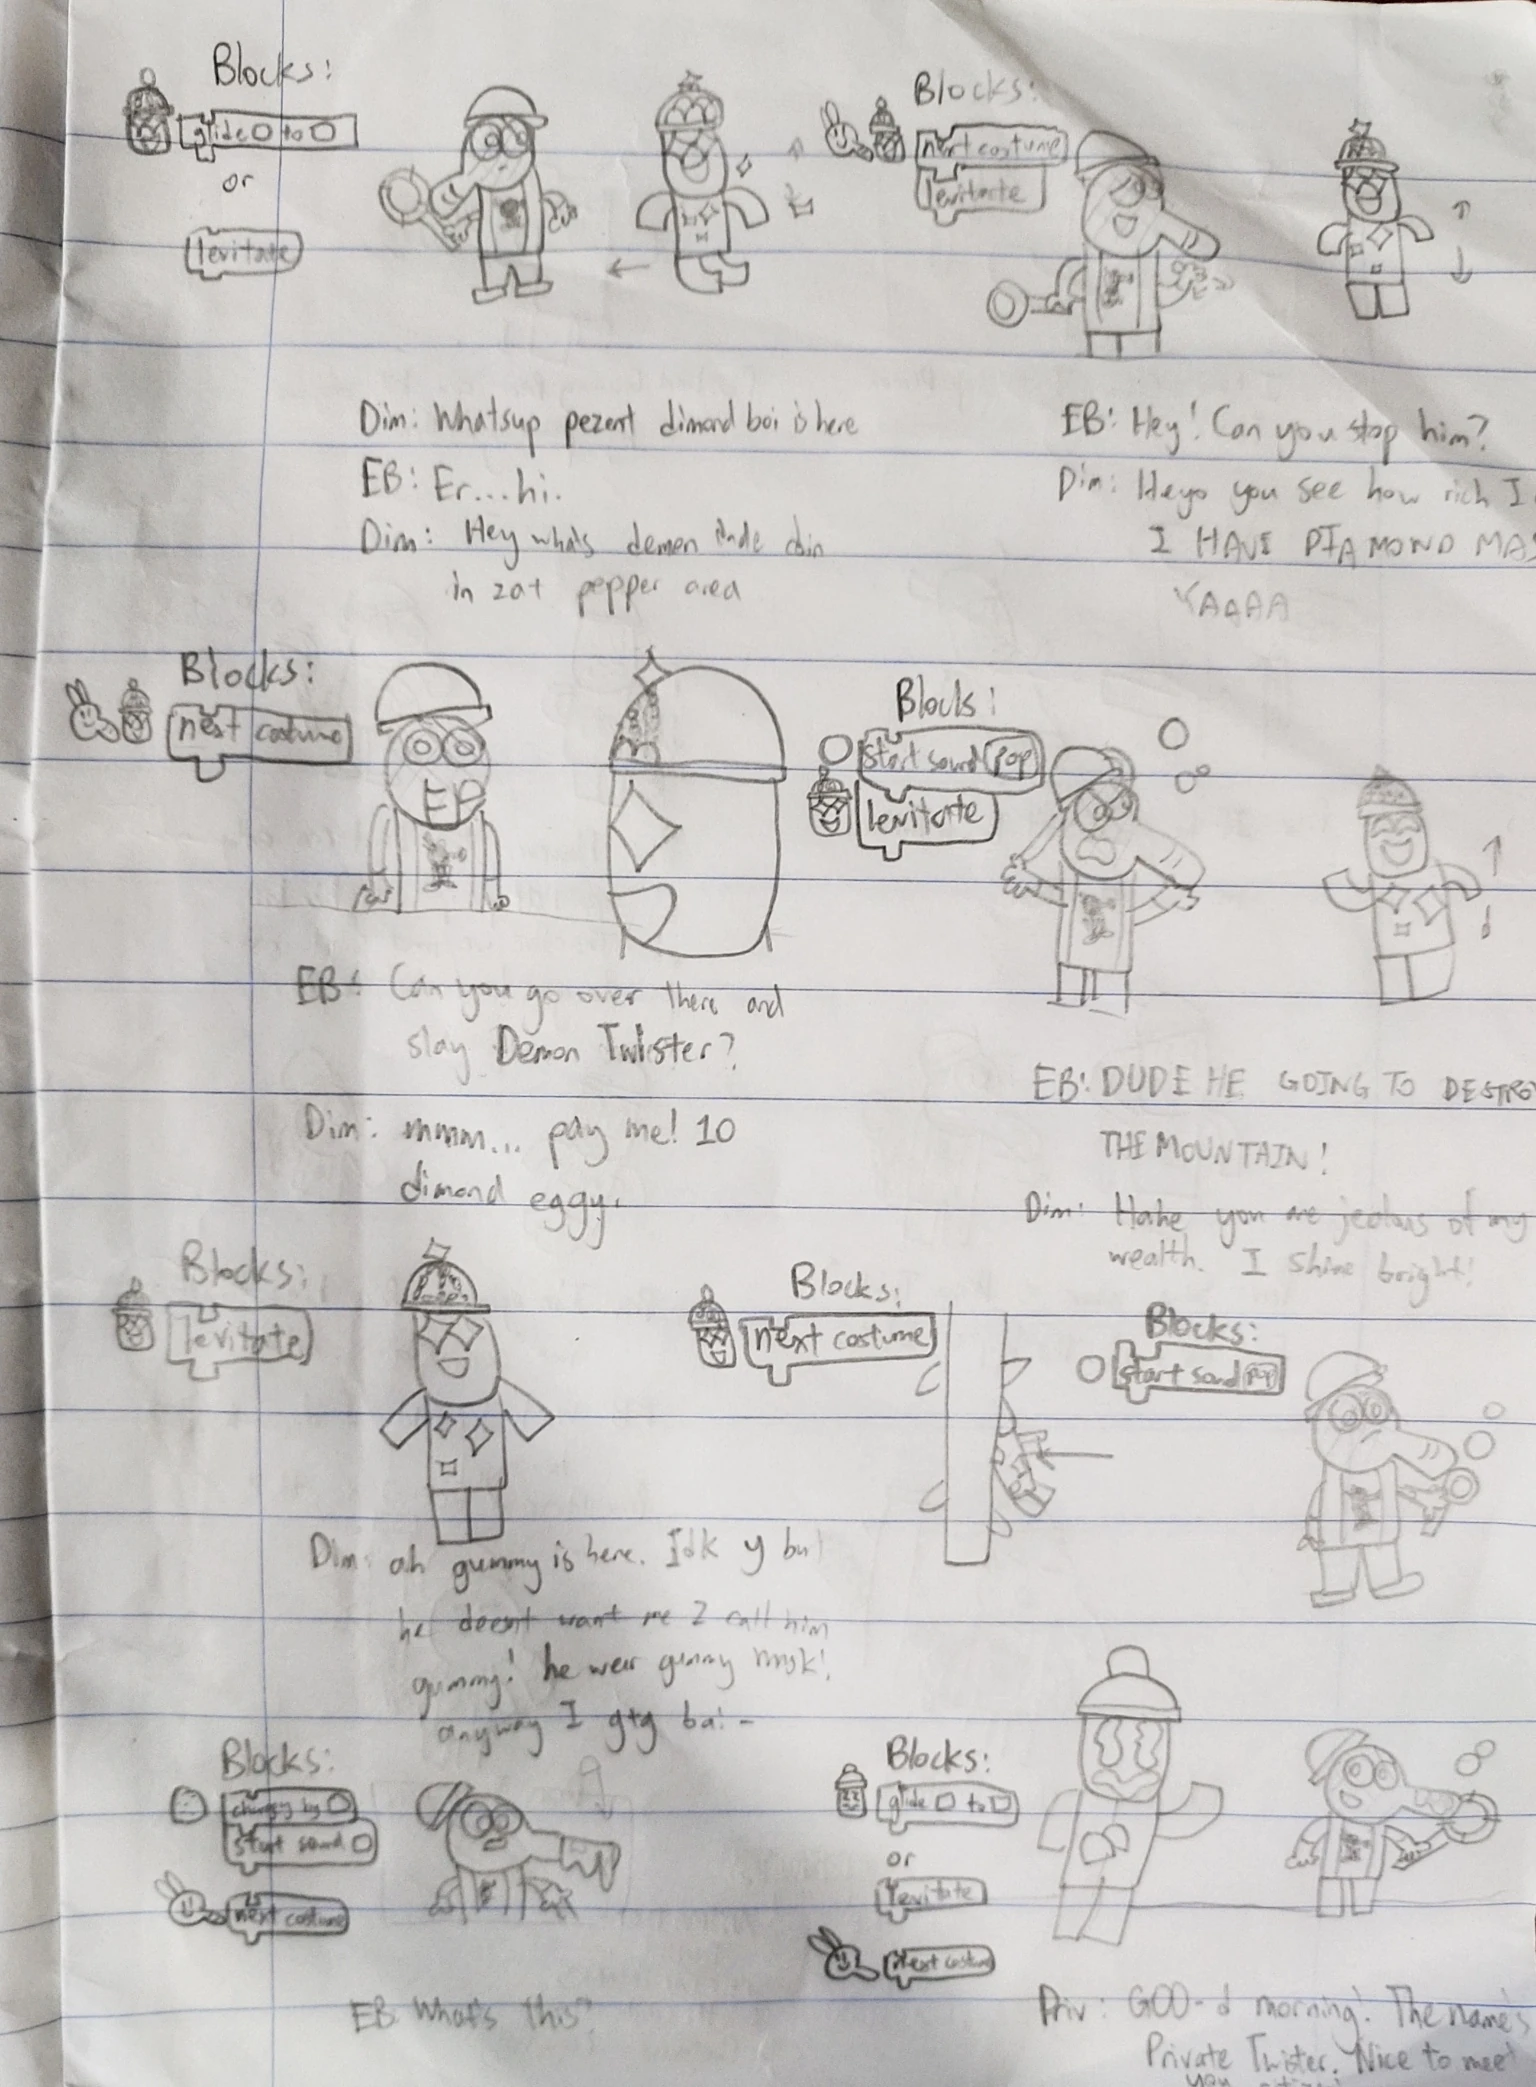 Blocks:
glide to
or
levitate
Blocks:
next costume
levitate
Dim: Whatsup pezent dimond boi is here
EB: Er...hi.
Dim: Hey whats demon dude doin
in zat pepper area
EB: Hey! Can you stop him?
Dim: Heyo you see how rich I
I HAVE DIAMOND MAS
YAAAA
Blocks:
next costume
EB: Can you go over there and
slay Demon Twister?
Dim: mmm... pay me! 10
dimond eggy.
Blocks:
start sound pop
levitate
EB: DUDE HE GOING TO DESTRO
THE MOUNTAIN!
Dim: Hahe you are jealous of my
wealth. I shine bright!
Blocks:
levitate
Dim: ah gummy is here. Idk y but
he doesnt want me 2 call him
gummy! he wear gummy mask!
anyway I gtg bai-
Blocks:
next costume
Blocks:
start sound pop
Blocks:
by
start sound
next costume
EB: What's this?
Blocks:
glide to
or
levitate
next costume
Priv: GOO-d morning! The name's
Private Twister. Nice to meet
you